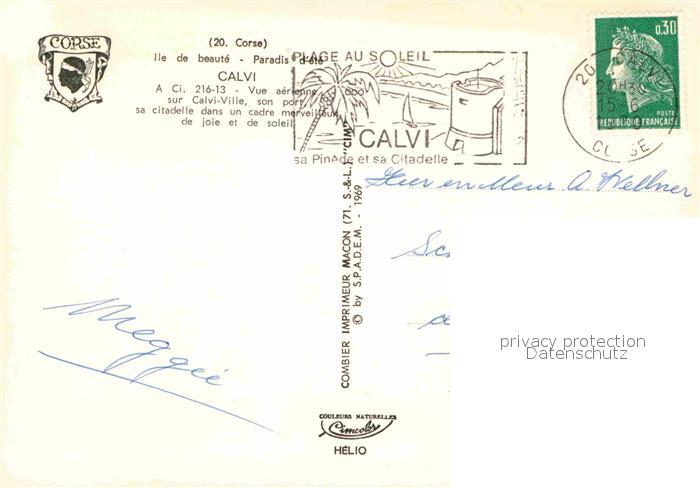 CORSE
(20. Corse)
Ile de beauté - Paradis d'été
CALVI
A Ci. 216-13 - Vue aérienne
sur Calvi-Ville, son port,
sa citadelle dans un cadre merveilleux
de joie et de soleil
PLAGE AU SOLEIL
CALVI
sa Pinède et sa Citadelle
0,30
POSTES
REPUBLIQUE FRANÇAISE
20
CORSE
COMBIER IMPRIMEUR MACON (71. S.-&-L.) "CIM"
© by S.P.A.D.E.M. - 1969
en Meur A. Wellner
Meggie
privacy protection
Datenschutz
COULEURS NATURELLES
Cimcolor
HÉLIO